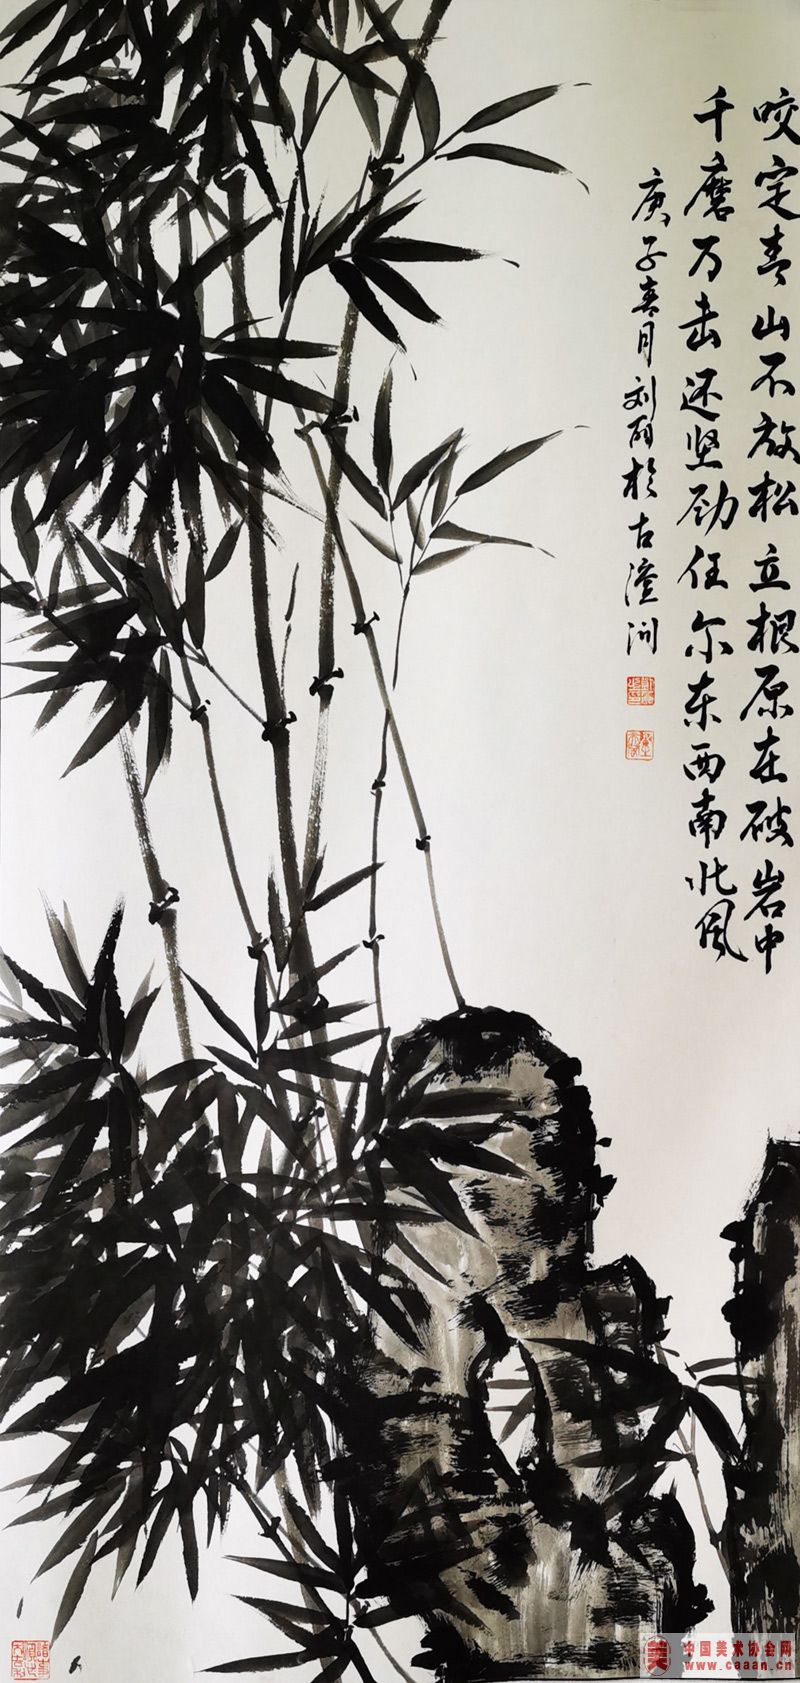 咬定青山不放松立根原在破岩中
千磨万击还坚劲任尔东西南北风
庚子春月刘於古
中国美术协会网
www.caaan.cn